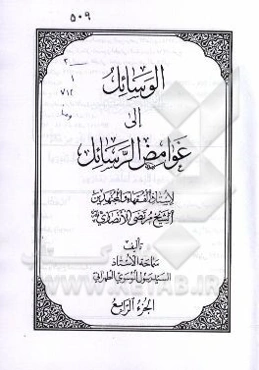 ٥٠٩
٢
١
٧١٢
الوسائل
إلى
غوامض الرسائل
لإستاذ الفقهاء والمجتهدين
الشيخ مرتضى الأنصاري
تأليف
سماحة الأستاذ
السيد رسول الموسوي الطهراني
الجزء الرابع